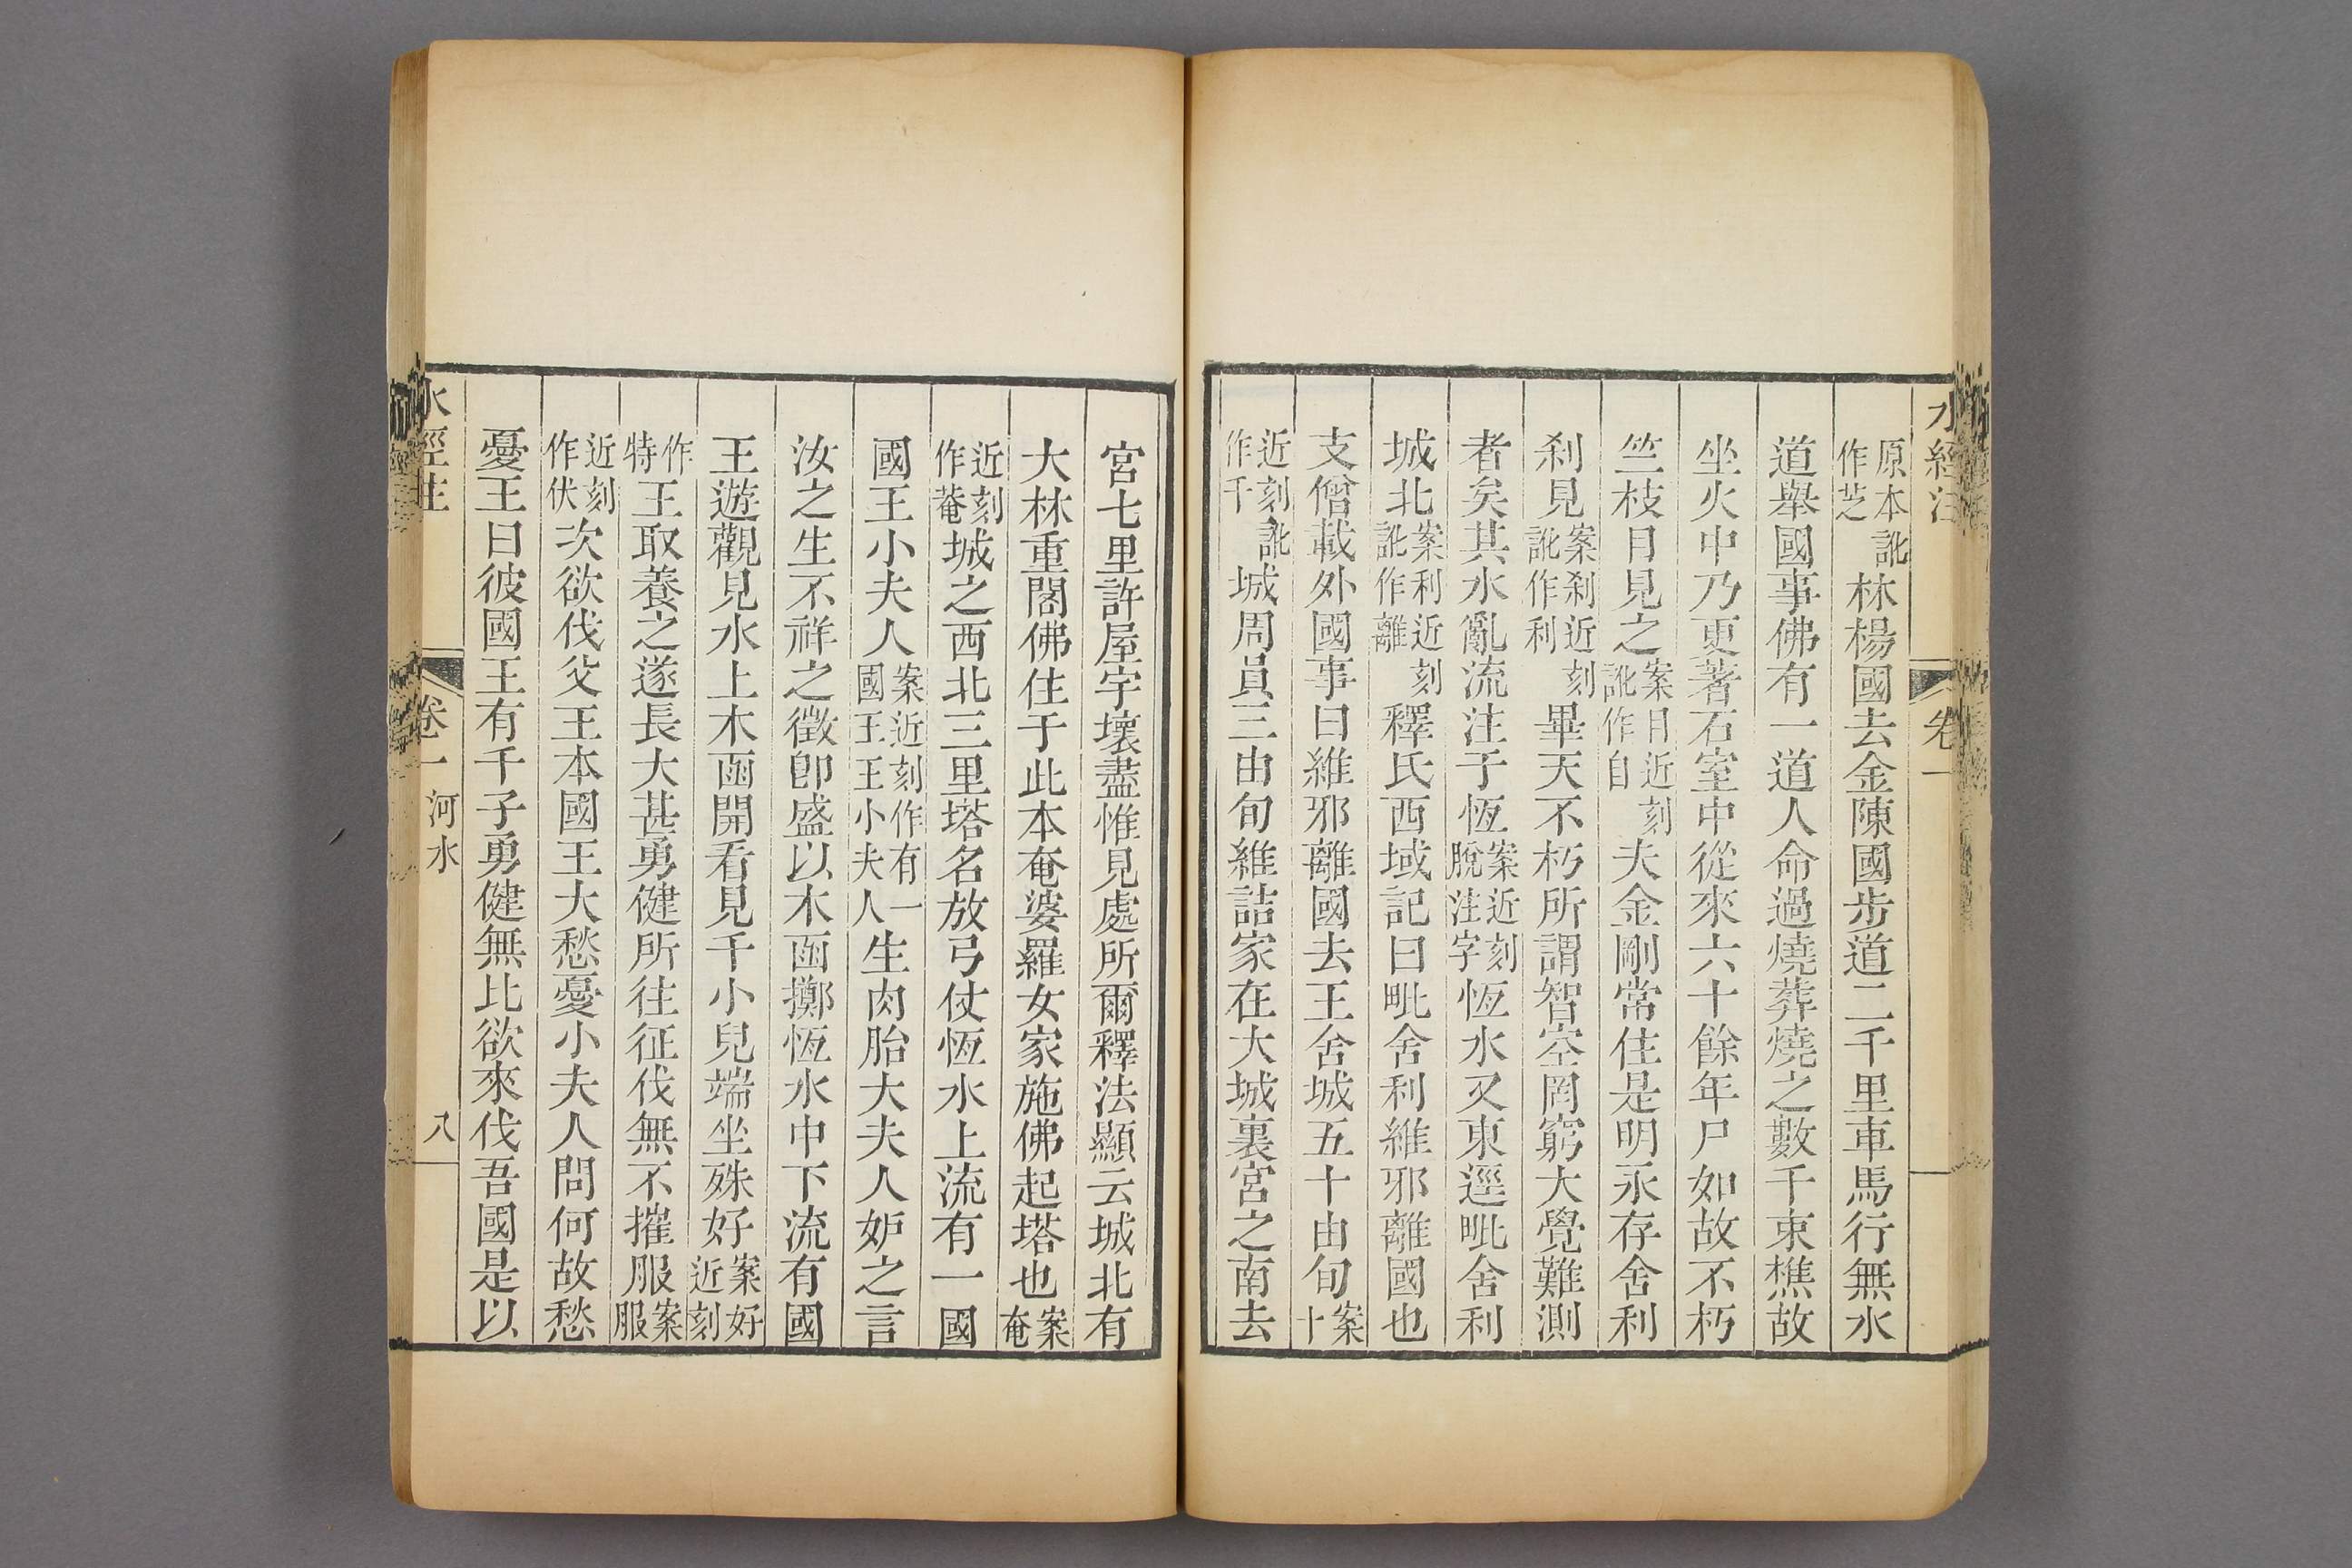 水經注 卷一
原本訛作芝林楊國去金陳國步道二千里車馬行無水
道舉國事佛有一道人命過燒葬燒之數千束樵故
坐火中乃更著石室中從來六十餘年尸如故不朽
竺枝目見之案目近刻訛作自夫金剛常住是明永存舍利
刹見案刹近刻訛作利畢天不朽所謂智空罔窮大覺難測
者矣其水亂流注于恆案近刻脫注字恆水又東逕毗舍利
城北案利近刻訛作離釋氏西域記曰毗舍利維邪離國也
支僧載外國事曰維邪離國去王舍城五十由旬案十
近刻訛作千城周員三由旬維詰家在大城裏宮之南去
宮七里許屋宇壞盡惟見處所爾釋法顯云城北有
大林重閣佛住于此本奄婆羅女家施佛起塔也案奄
近刻作菴城之西北三里塔名放弓仗恆水上流有一國
國王小夫人案近刻作有一國王王小夫人生肉胎大夫人妒之言
汝之生不祥之徵卽盛以木函擲恆水中下流有國
王遊觀見水上木函開看見千小兒端坐殊好案好近刻
作特王取養之遂長大甚勇健所往征伐無不摧服案服
近刻作伏次欲伐父王本國王大愁憂小夫人問何故愁
憂王曰彼國王有千子勇健無比欲來伐吾國是以
水經注 卷一 河水 八